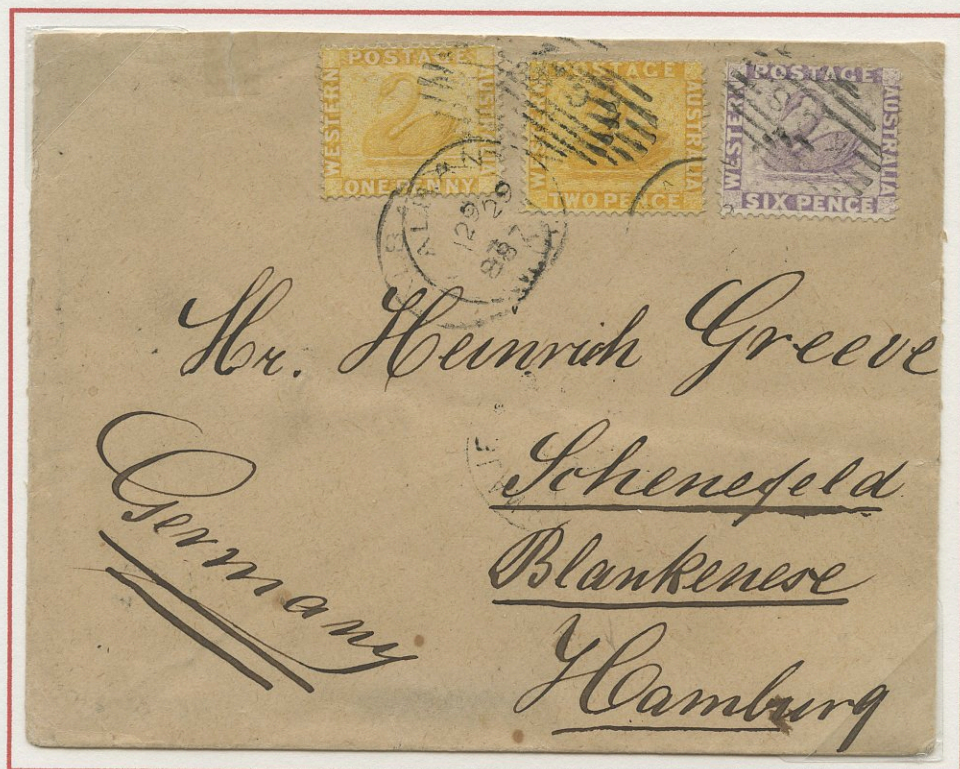 POSTAGE
WESTERN
AUSTRALIA
ONE PENNY
POSTAGE
WESTERN
AUSTRALIA
TWO PENCE
POSTAGE
WESTERN
AUSTRALIA
SIX PENCE
Mr. Heinrich Greeve
Schenefeld
Blankenese
Hamburg
Germany